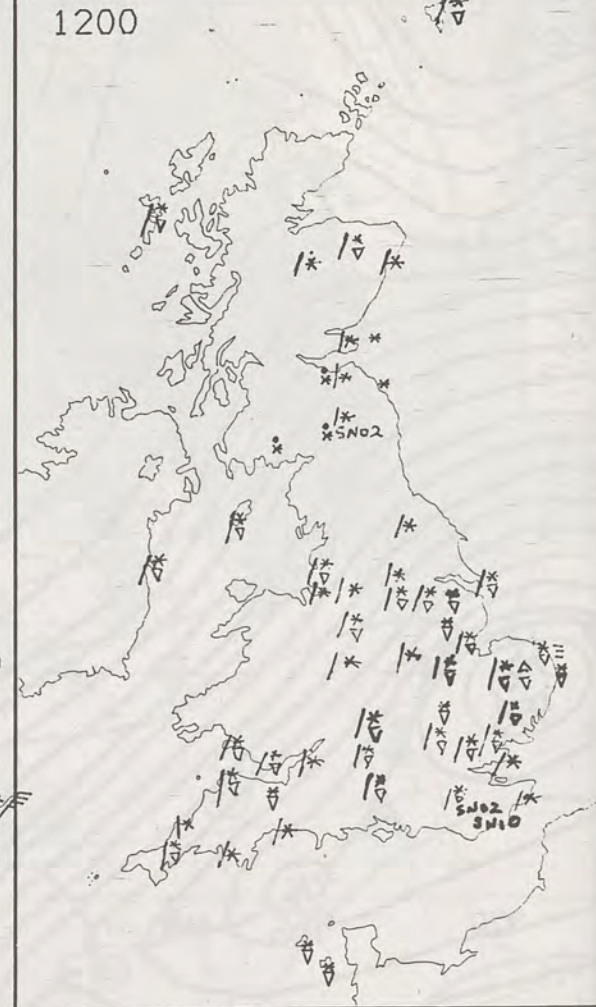 1200
SN02
SN02
SN10